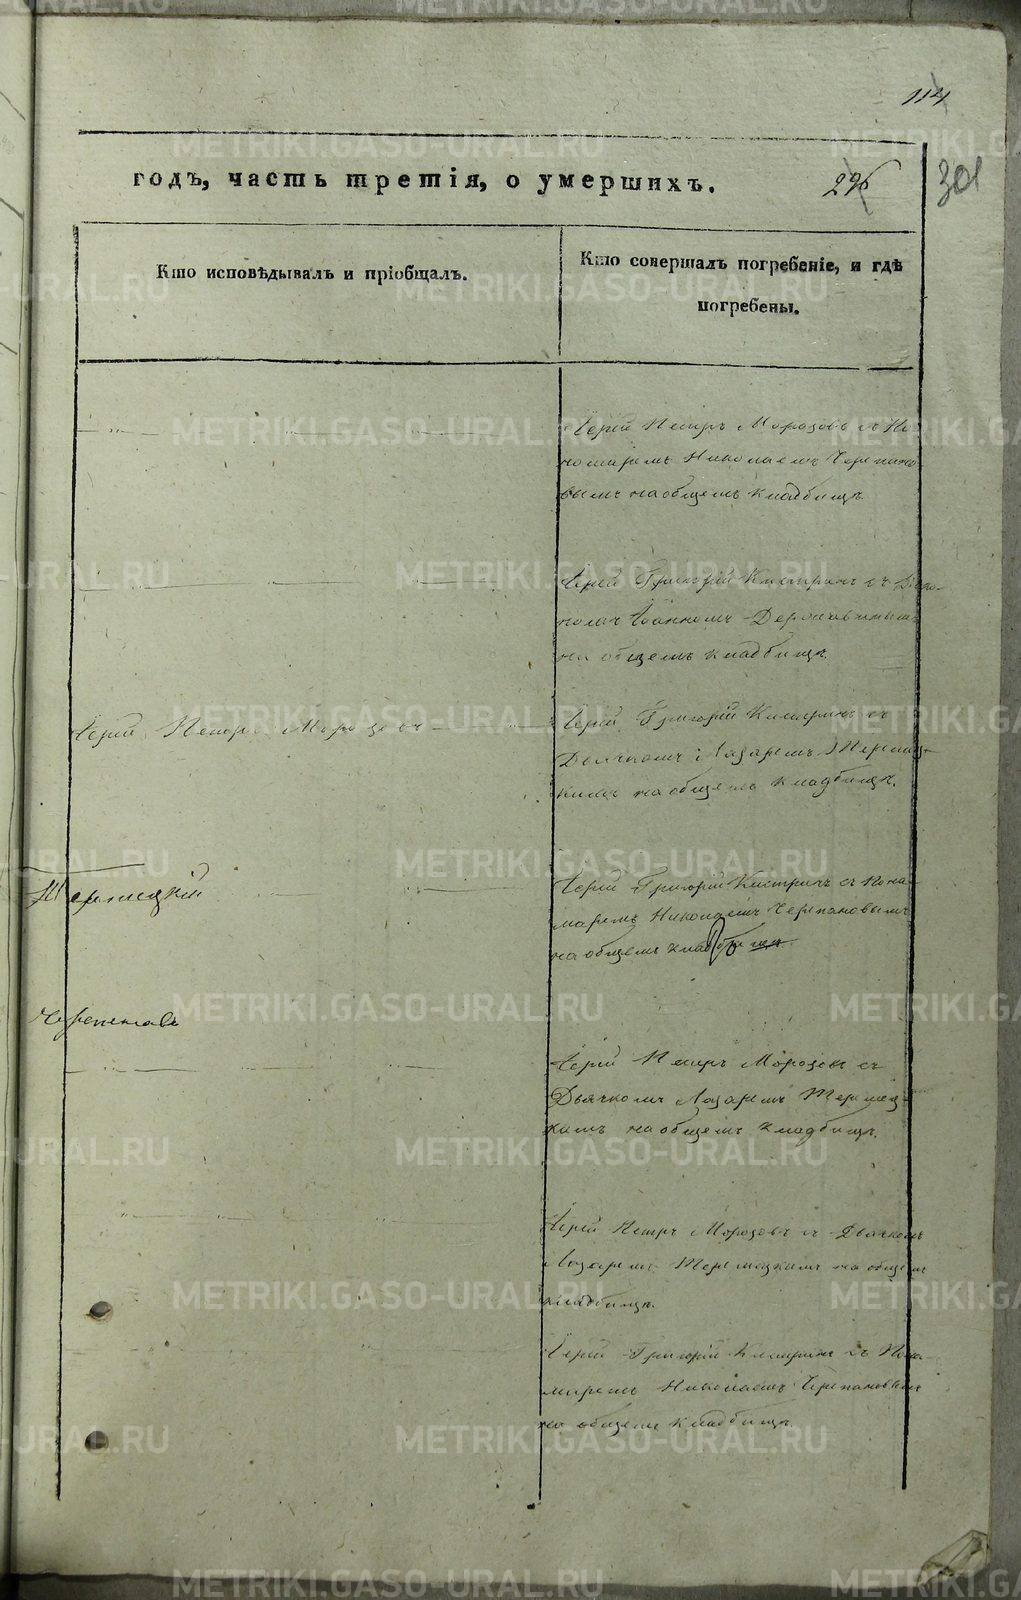 114
годъ, часть третія, о умершихъ.
296
301
Кто исповѣдывалъ и пріобщалъ.
Кто совершалъ погребеніе, и гдѣ
погребены.
Іерей Петръ Морозовъ съ По
номаремъ Николаемъ Черепано
вымъ на общемъ кладбищѣ
Іерей Григорій Кистринъ съ
Іоанномъ
на общемъ кладбищѣ.
Іерей Петръ Морозовъ
Іерей Григорій Кистринъ съ
Дьячкомъ Лазаремъ Терлец-
кимъ на общемъ кладбищѣ.
Терлецкій
Іерей Григорій Кистринъ съ Поно
маремъ Николаемъ Черепановымъ
на общемъ кладбищѣ
Черепановъ
Іерей Петръ Морозовъ съ
Дьячкомъ Лазаремъ Терлец-
кимъ на общемъ кладбищѣ.
Іерей Петръ Морозовъ съ Дьячкомъ
Лазаремъ Терлецкимъ на общемъ
кладбищѣ.
Іерей Григорій Кистринъ съ Поно-
маремъ Николаемъ Черепановымъ
на общемъ кладбищѣ.
METRIKI.GASO-URAL.RU